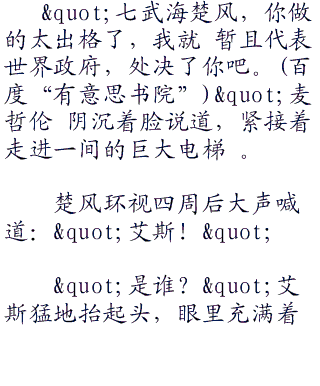 &quot;七武海楚风，你做
的太出格了，我就 暂且代表
世界政府，处决了你吧。(百
度“有意思书院”)&quot;麦
哲伦 阴沉着脸说道，紧接着
走进一间的巨大电梯 。
楚风环视四周后大声喊
道：&quot;艾斯！&quot;
&quot;是谁？&quot;艾
斯猛地抬起头，眼里充满着